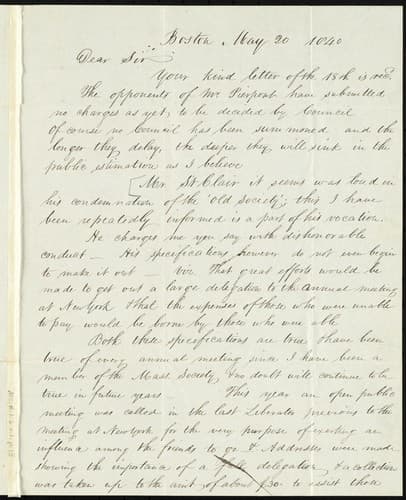 Boston, May 20 1840
Dear Sir,
Your kind letter of the 18th is recd.
The opponents of Mr Pierpont have submitted
no charges as yet, to be decided by Council
Of course no Council has been summoned and the
longer they delay, the deeper they will sink in the
public estimation as I believe
[Mr. St. Clair it seems was loud in
his condemnation of the "Old Society"; this I have
been repeatedly informed is a part of his vocation.
He charges me you say with dishonorable
conduct — His specifications however do not even begin
to make it out — viz That great efforts would be
made to get out a large delegation to the annual meeting
at New York & that the expenses of those who were unable
to pay would be borne by those who were able
Both these specifications are true & have been
true of every annual meeting since I have been a
member of the Mass Society, & no doubt will continue to be
true in future years — This year an open public
meeting was called in the last Liberator previous to the
meeting at New York for the very purpose of exerting an
influence among the friends to go & Addresses were made
showing the importance of a full delegation, & a collection
was taken up to the amt. of about $30. to assist those